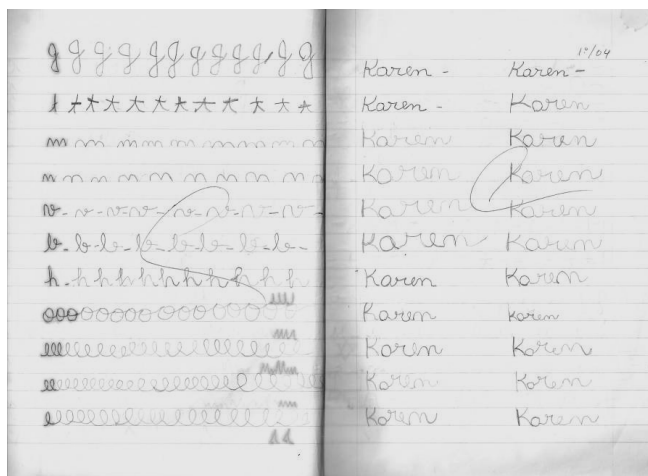 g g g g g g g g g g g g
t t t t t t t t t t t t
m m m m m m m m m
n n n n n n n n n n
v - v - v - v - v - v - v - v -
b - b - b - b - b - b - b - b -
h . h h h h h h h h h h
o o o o o o o o o o o o o o
e e e e e e e e e e e e e e e e
e e e e e e e e e e e e e e e e
e e e e e e e e e e e e e e e e
1º/04
Karen - Karen -
Karen - Karen
Karen Karen
Karen Karen
Karen Karen
Karen Karen
Karen Karen
Karen Karen
Karen Karen
Karen Karen
Karen Karen